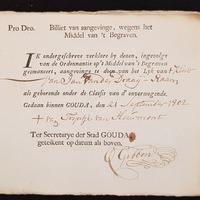 Pro Deo. Billiet van aangevinge, wegens het
Middel van 't Begraven.
IK ondergeschreve verklare by dezen, ingevolge
van de Ordonnantie op 't Middel van 't Begraven
geëmaneert, aangevinge te doen van het Lyk van 't Kint
van Jan van der
als gehorende onder de Classis van d' onvermogende.
Gedaan binnen GOUDA, den 21 September 1802
Ter Secretarye der Stad GOUDA
getekent op datum als boven,